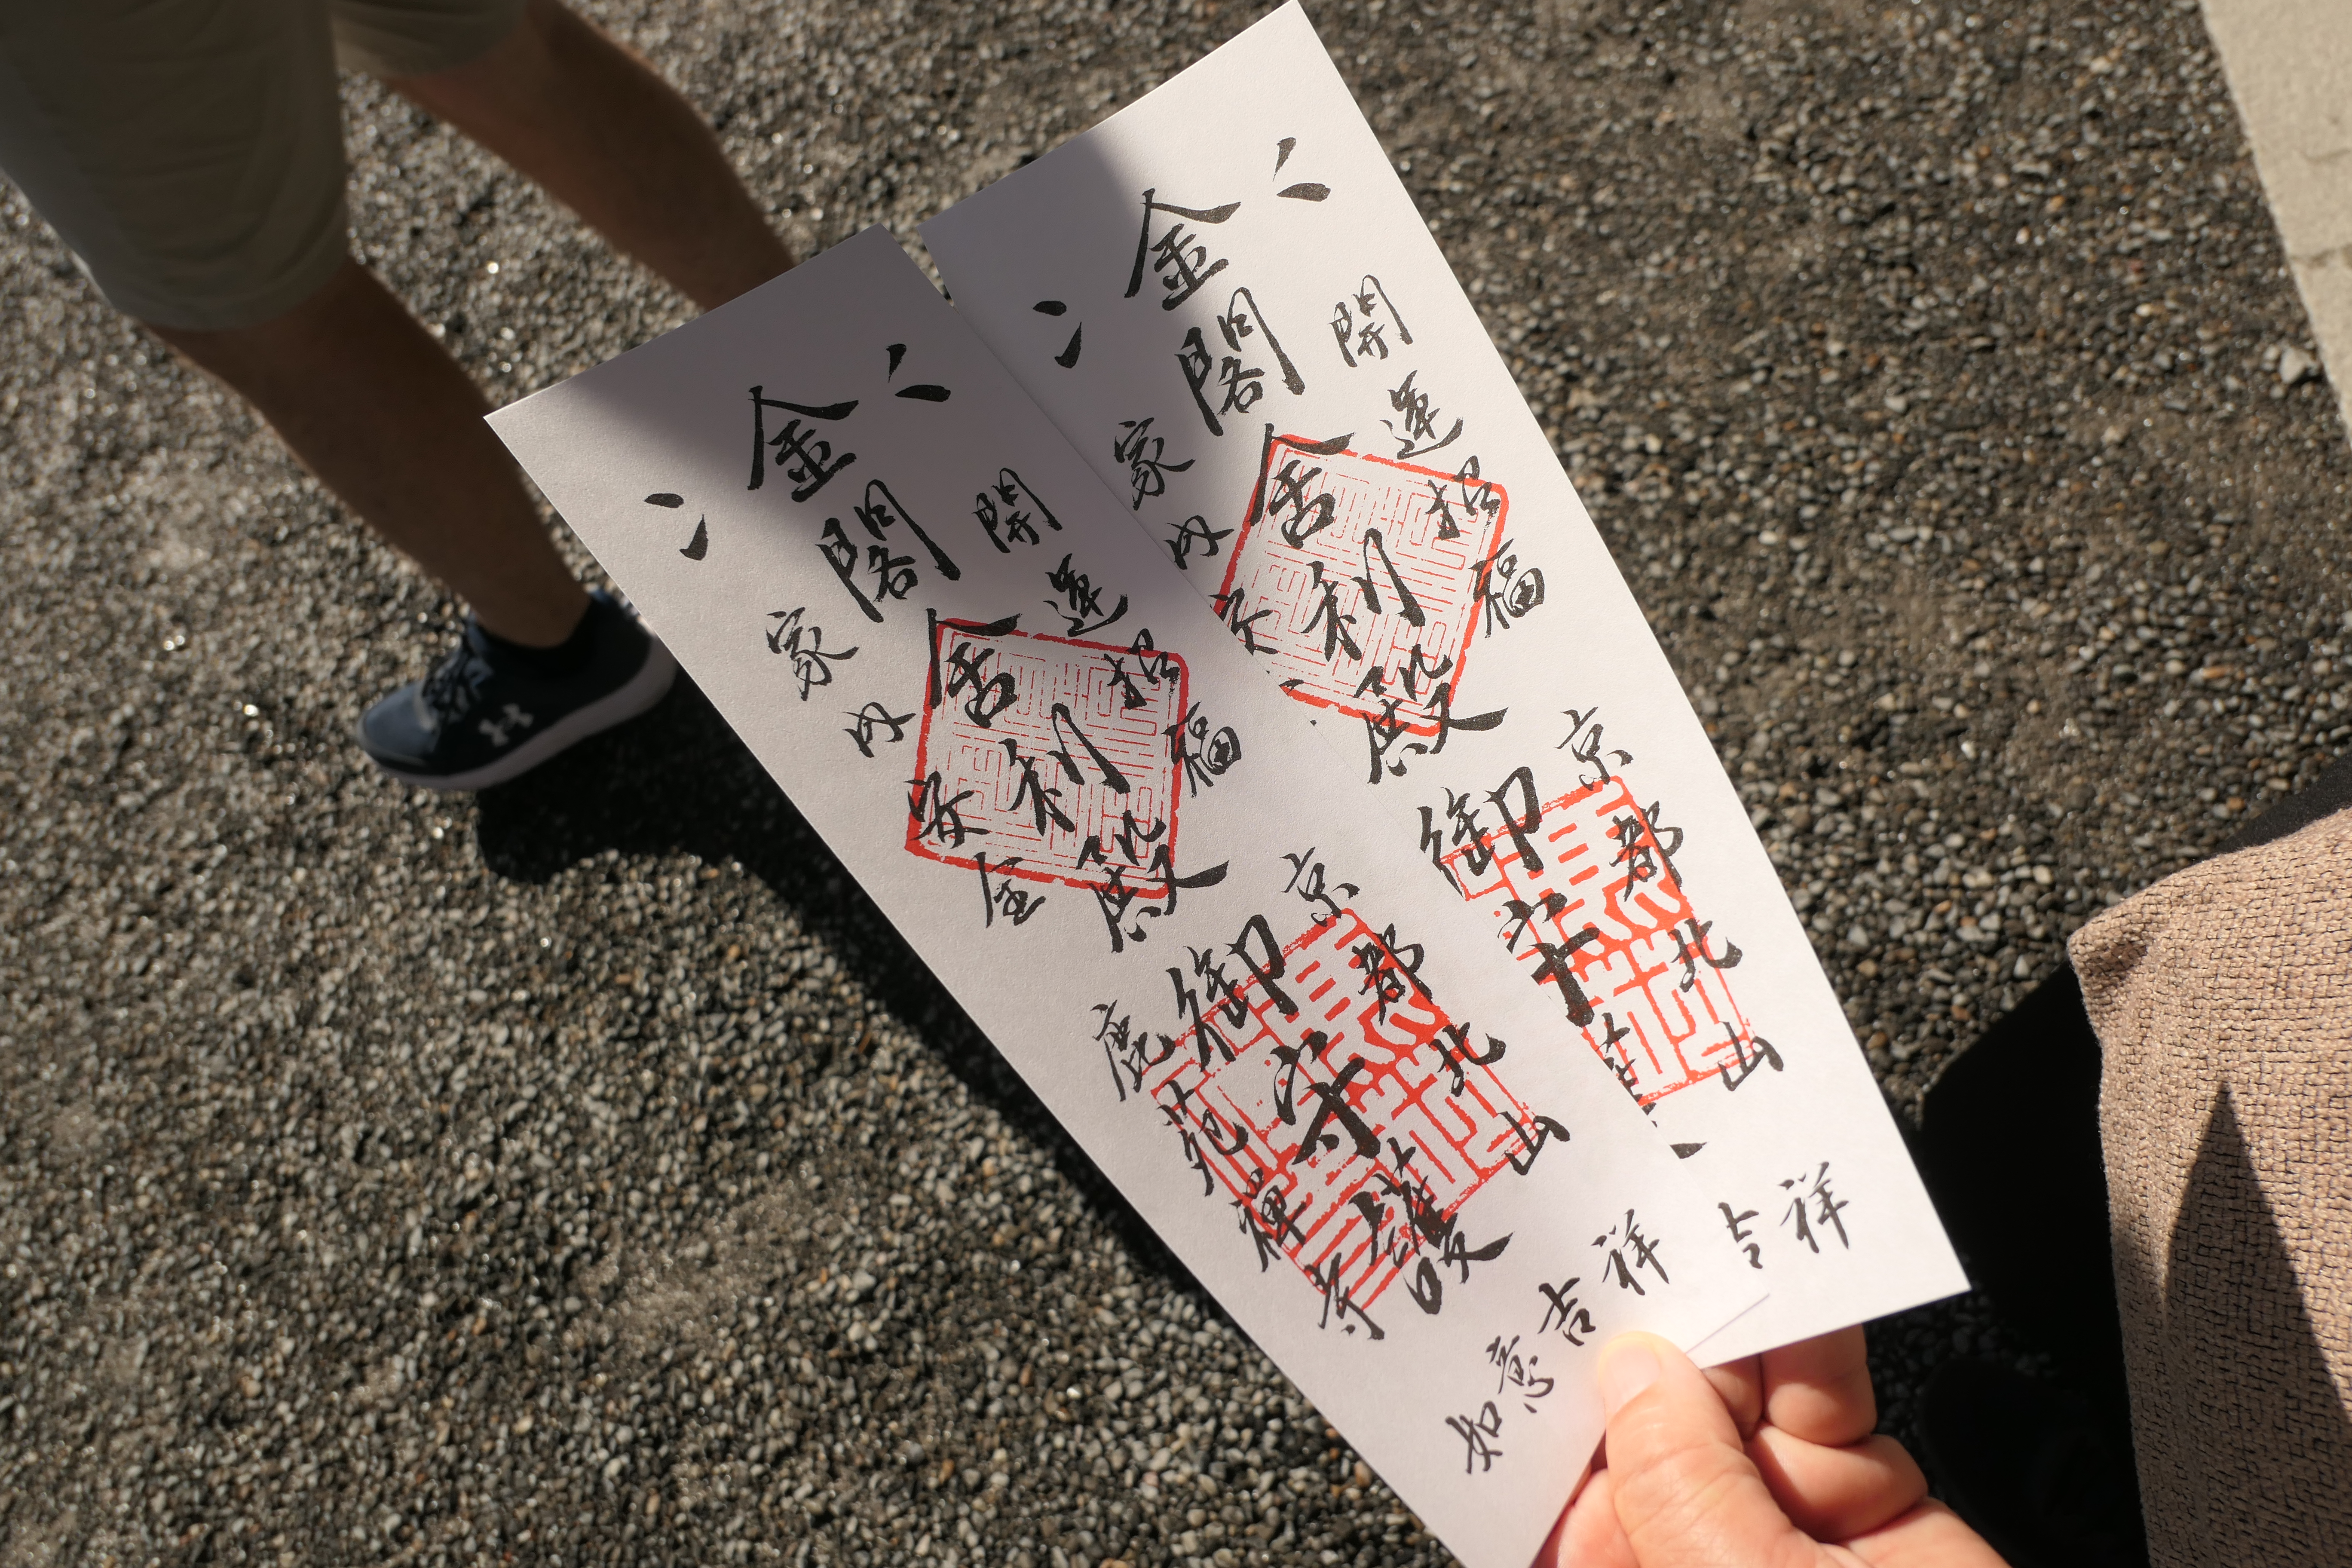 金閣舎利殿御守護
開運招福
家内安全
京都北山
鹿苑禅寺
如意吉祥
金閣舎利殿御守
開運招福
家内安
京都北山
吉祥